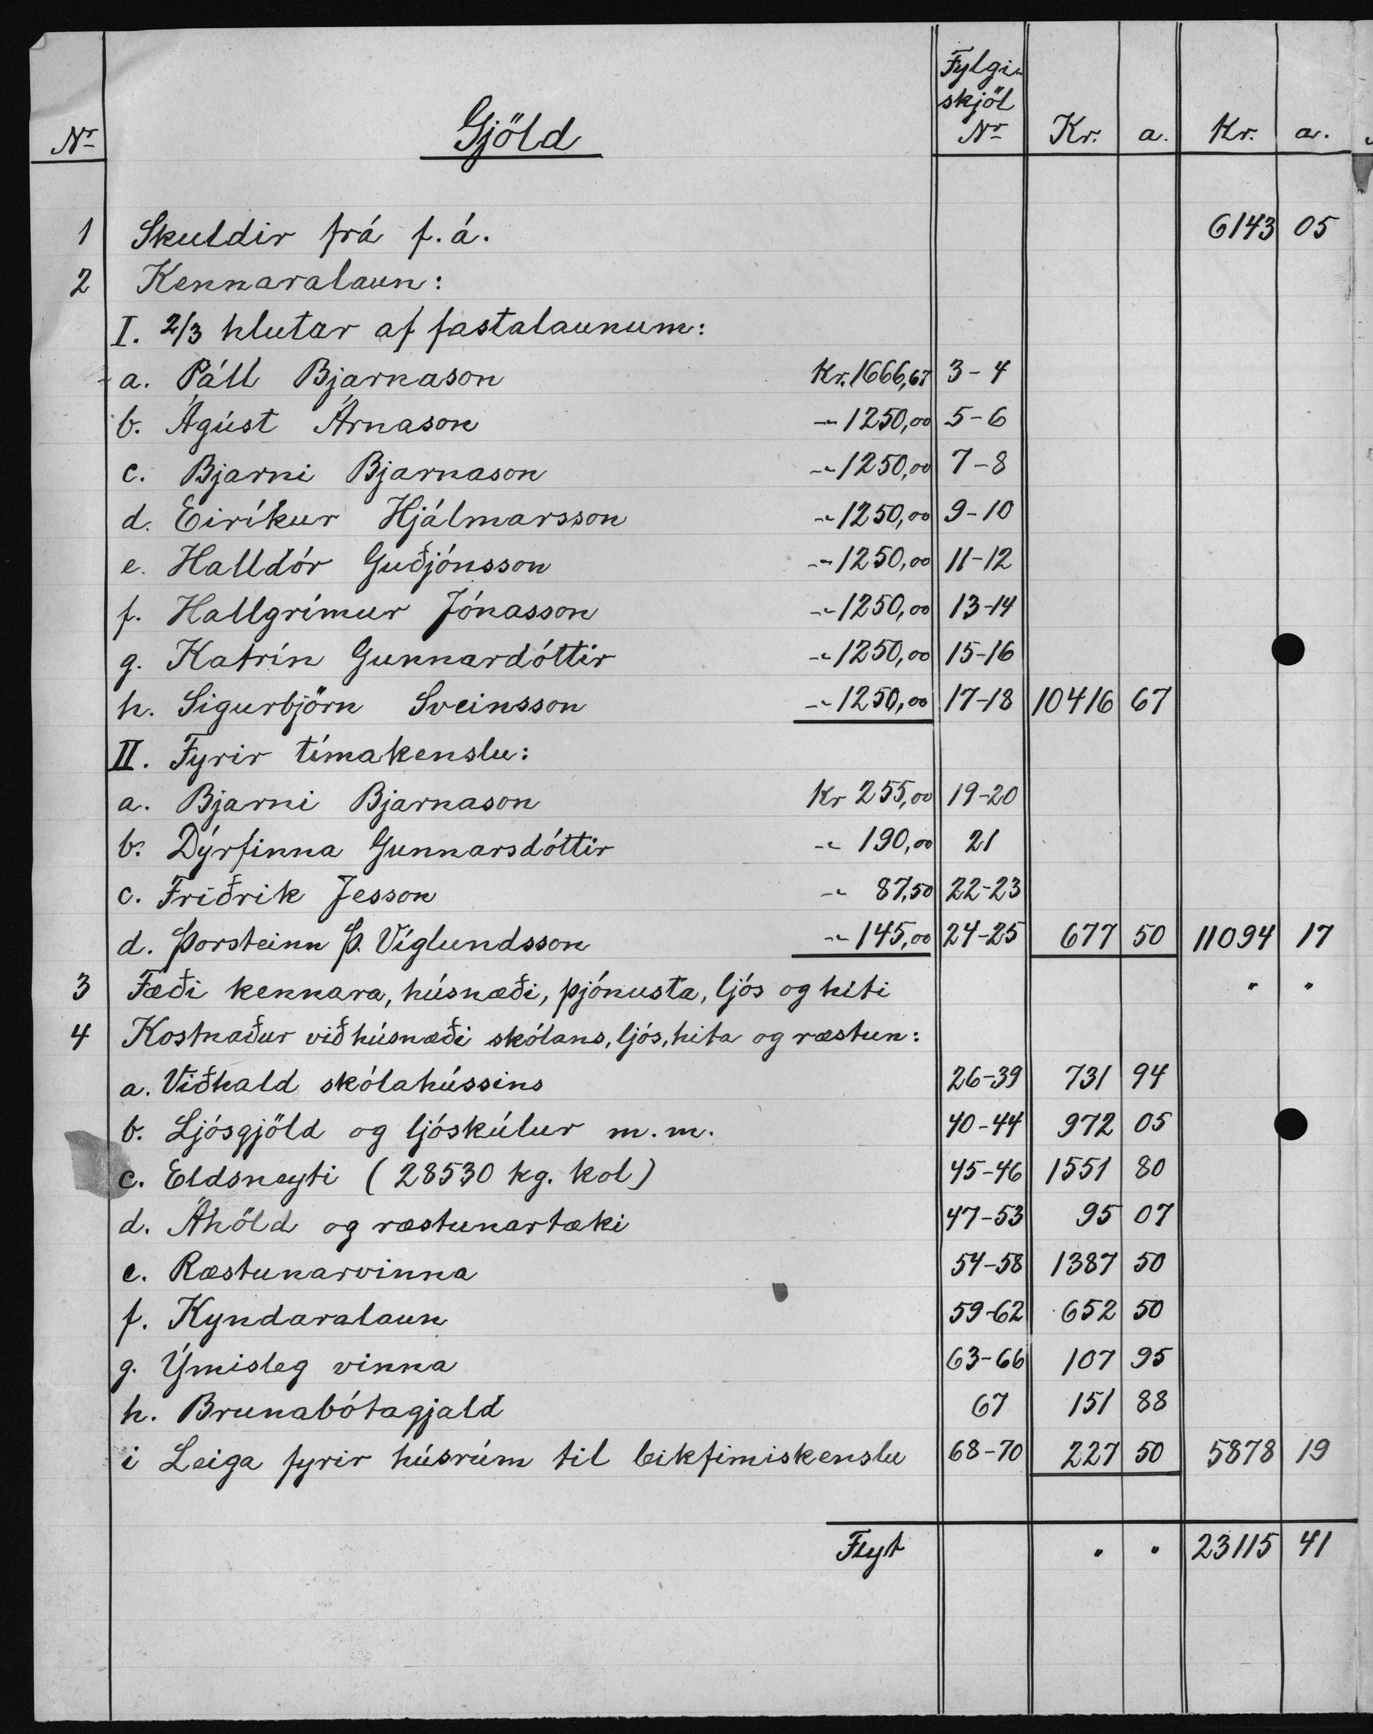 Fylgi-
skjöl
Nr Gjöld Nr Kr. a. Kr. a.
1 Skuldir frá f. á. 6143 05
2 Kennaralaun:
I. 2/3 hlutar af fastalaunum:
a. Páll Bjarnason Kr. 1666,67 3-4
b. Ágúst Árnason -"- 1250,00 5-6
c. Bjarni Bjarnason -"- 1250,00 7-8
d. Eiríkur Hjálmarsson -"- 1250,00 9-10
e. Halldór Guðjónsson -"- 1250,00 11-12
f. Hallgrímur Jónasson -"- 1250,00 13-14
g. Katrín Gunnardóttir -"- 1250,00 15-16
h. Sigurbjörn Sveinsson -"- 1250,00 17-18 10416 67
II. Fyrir tímakenslu:
a. Bjarni Bjarnason Kr 255,00 19-20
b. Dýrfinna Gunnarsdóttir -"- 190,00 21
c. Friðrik Jesson -"- 87,50 22-23
d. Þorsteinn Þ. Víglundsson -"- 145,00 24-25 677 50 11094 17
3 Fæði kennara, húsnæði, þjónusta, ljós og hiti " "
4 Kostnaður við húsnæði skólans, ljós, hita og ræstun:
a. Viðhald skólahússins 26-39 731 94
b. Ljósgjöld og ljóskúlur m.m. 40-44 972 05
c. Eldsneyti (28530 kg. kol) 45-46 1551 80
d. Áhöld og ræstunartæki 47-53 95 07
e. Ræstunarvinna 54-58 1387 50
f. Kyndaralaun 59-62 652 50
g. Ýmisleg vinna 63-66 107 95
h. Brunabótagjald 67 151 88
i Leiga fyrir húsrúm til leikfimiskenslu 68-70 227 50 5878 19
Flyt " " 23115 41